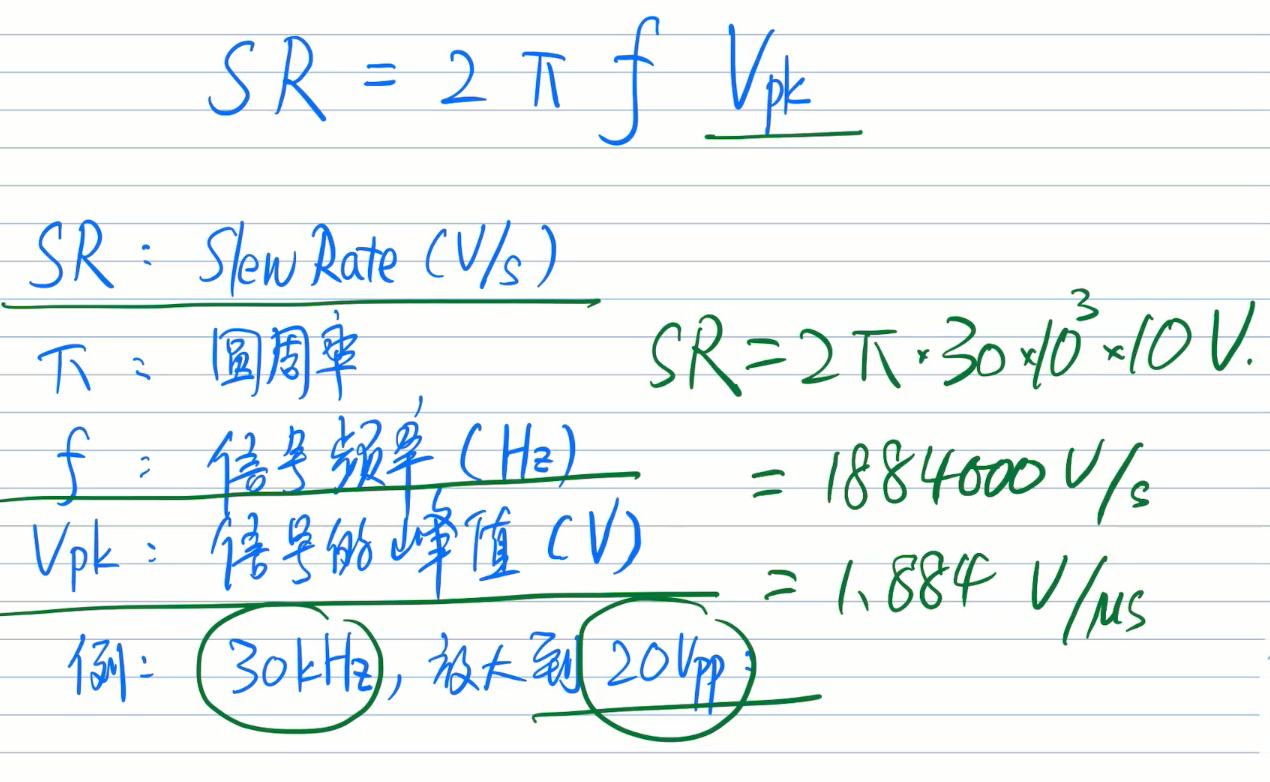 SR = 2 π f Vpk
SR : Slew Rate (V/s)
π : 圆周率
f : 信号频率 (Hz)
Vpk : 信号的峰值 (V)
例: 30kHz, 放大到 20Vpp:
SR = 2π · 30 × 10³ × 10 V.
= 1884000 V/s
= 1.884 V/μs